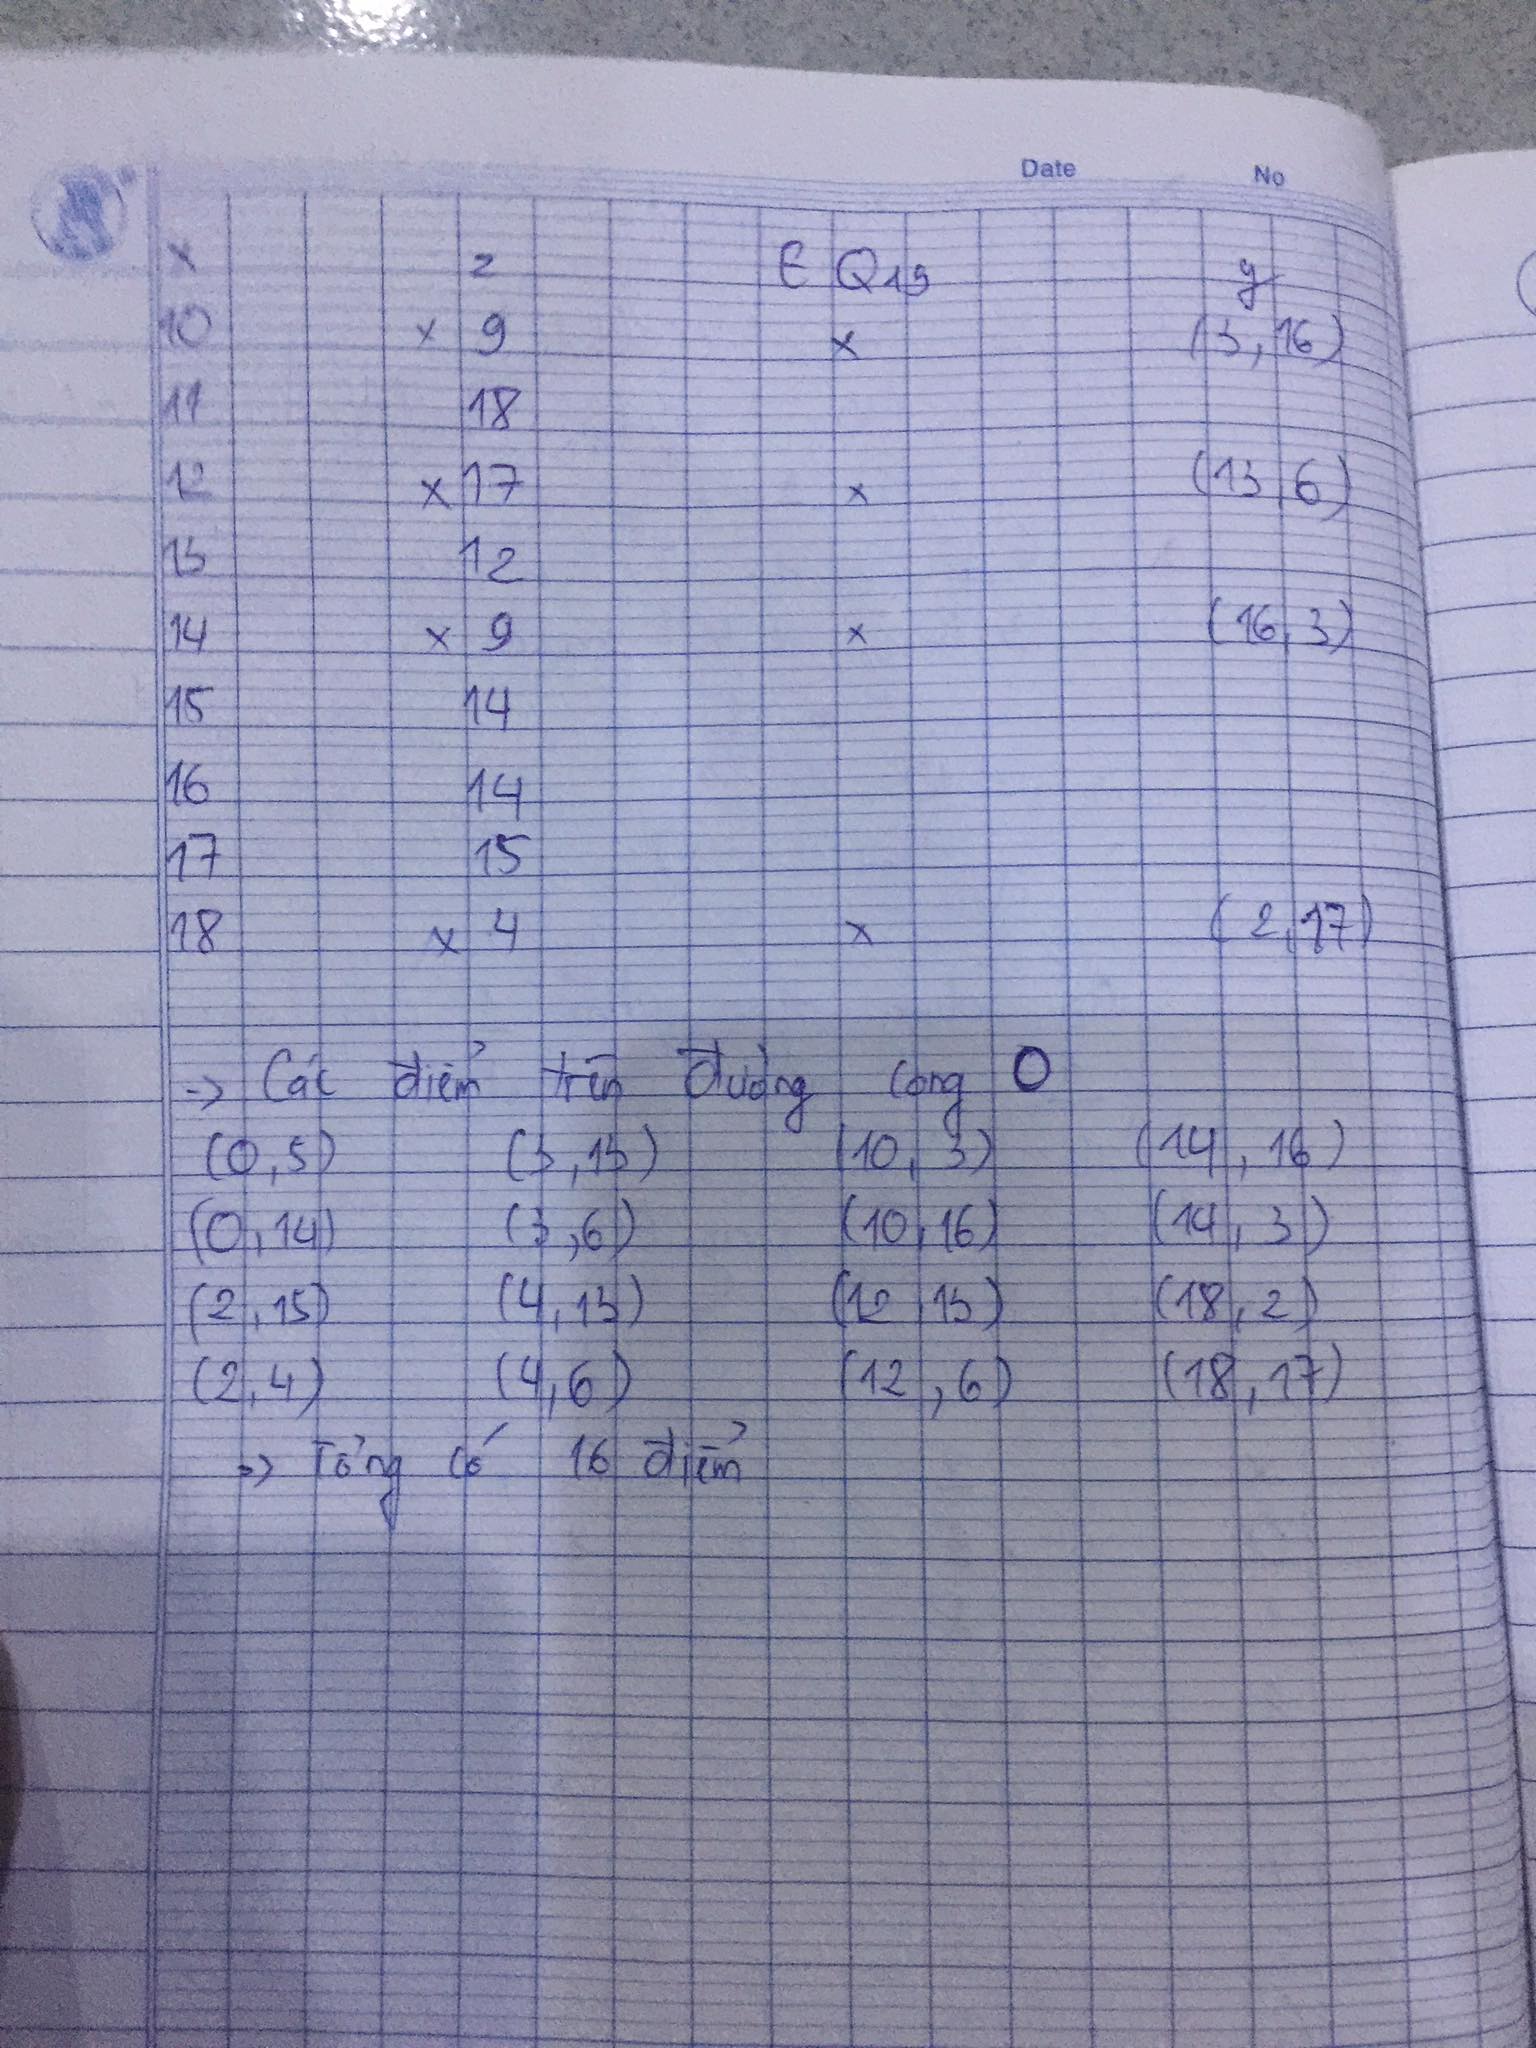 Date No
x z E Q19 y
10 x 9 x (3, 16)
11 18
12 x 17 x (13, 6)
13 12
14 x 9 x (16, 3)
15 14
16 14
17 15
18 x 4 x (2, 17)
-> Các điểm trên đường cong O
(0, 5) (3, 13) (10, 3) (14, 16)
(0, 14) (3, 6) (10, 16) (14, 3)
(2, 15) (4, 13) (12, 13) (18, 2)
(2, 4) (4, 6) (12, 6) (18, 17)
=> Tổng có 16 điểm